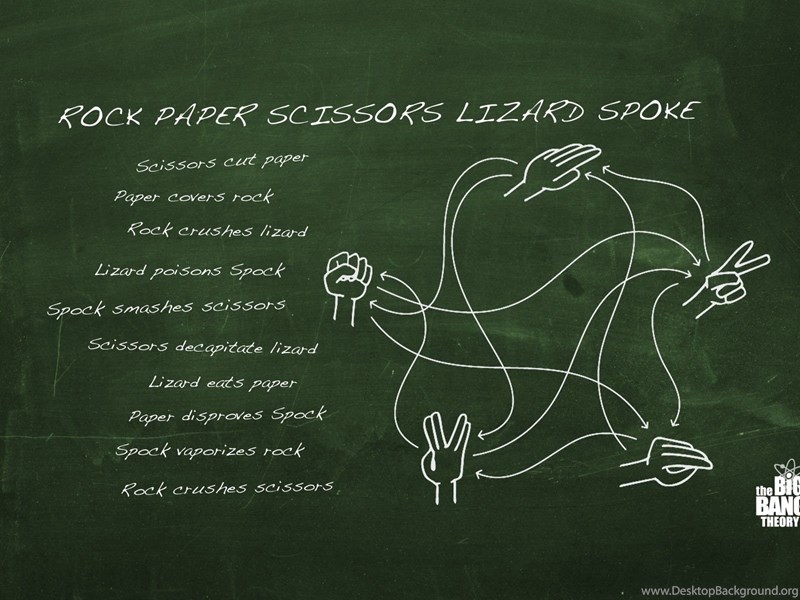 ROCK PAPER SCISSORS LIZARD SPOKE
Scissors cut paper
Paper covers rock
Rock crushes lizard
Lizard poisons Spock
Spock smashes scissors
Scissors decapitate lizard
Lizard eats paper
Paper disproves Spock
Spock vaporizes rock
Rock crushes scissors.
the BIG
BANG
THEORY
www.DesktopBackground.org